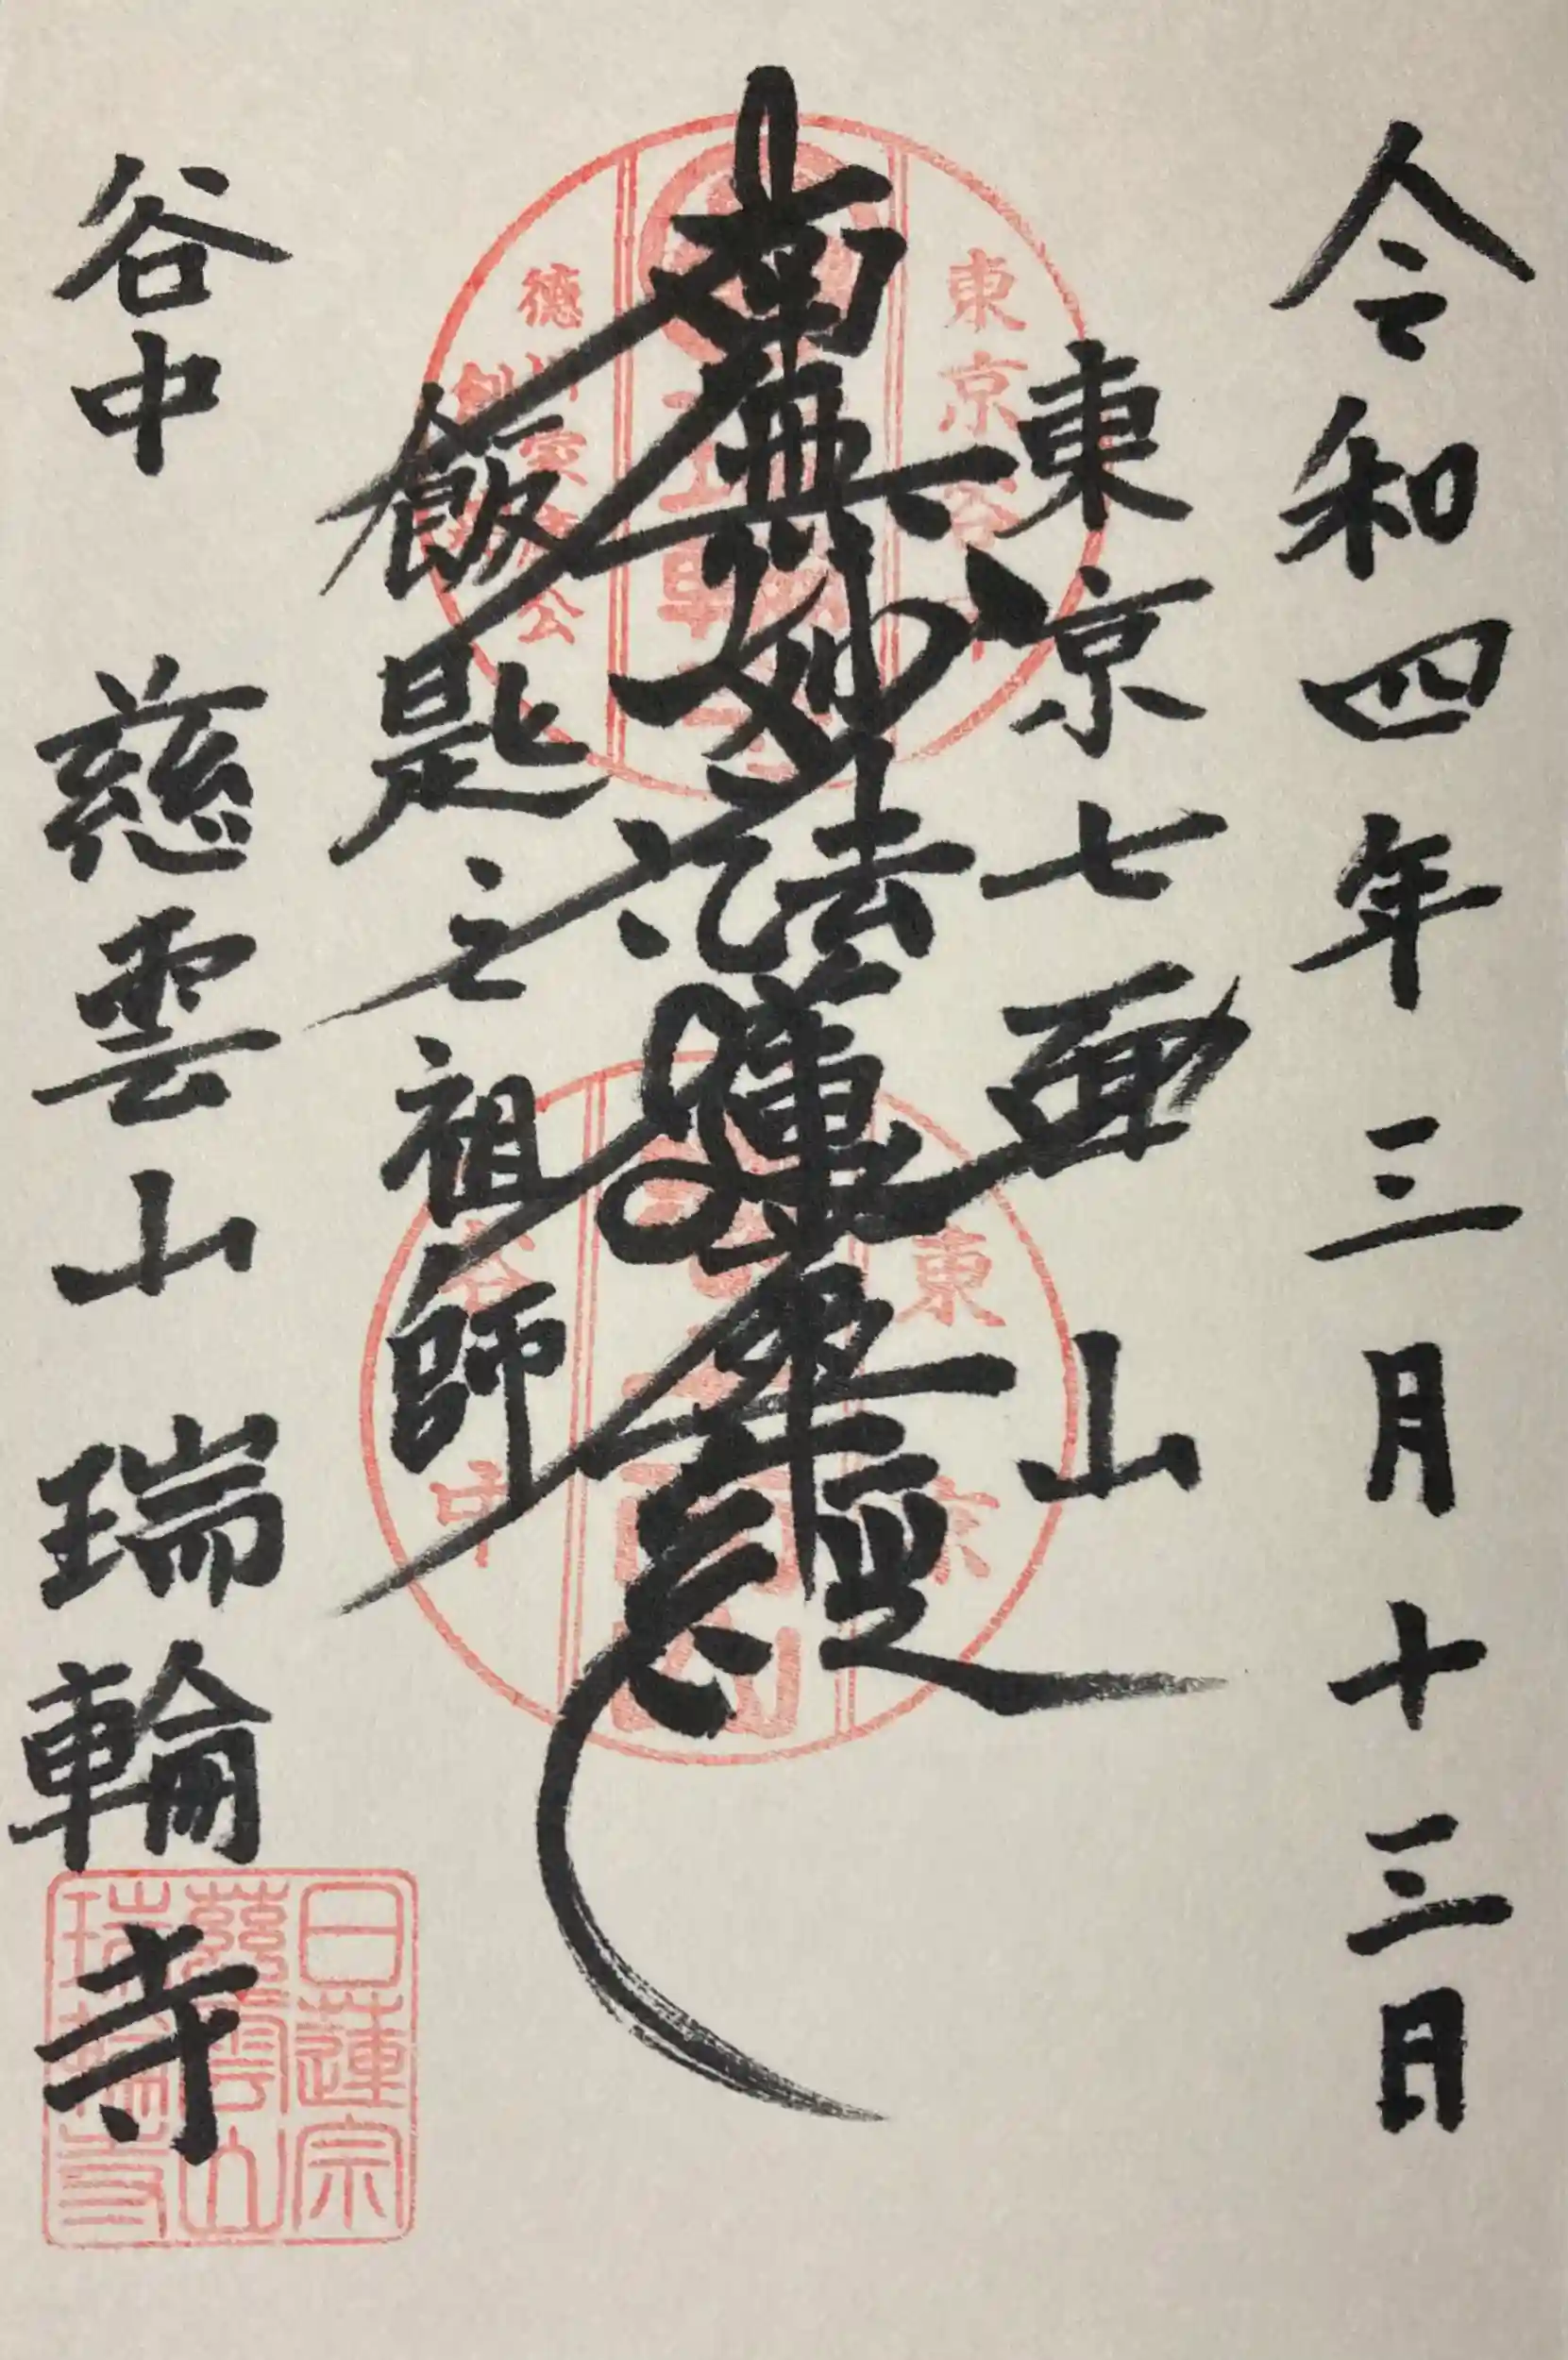 令和四年三月十三日
東京七面山
南無妙法蓮華経
飯匙之祖師
谷中 慈雲山 瑞輪寺
東京
德川家康公
東京
谷中
日蓮宗
慈雲山
瑞輪寺